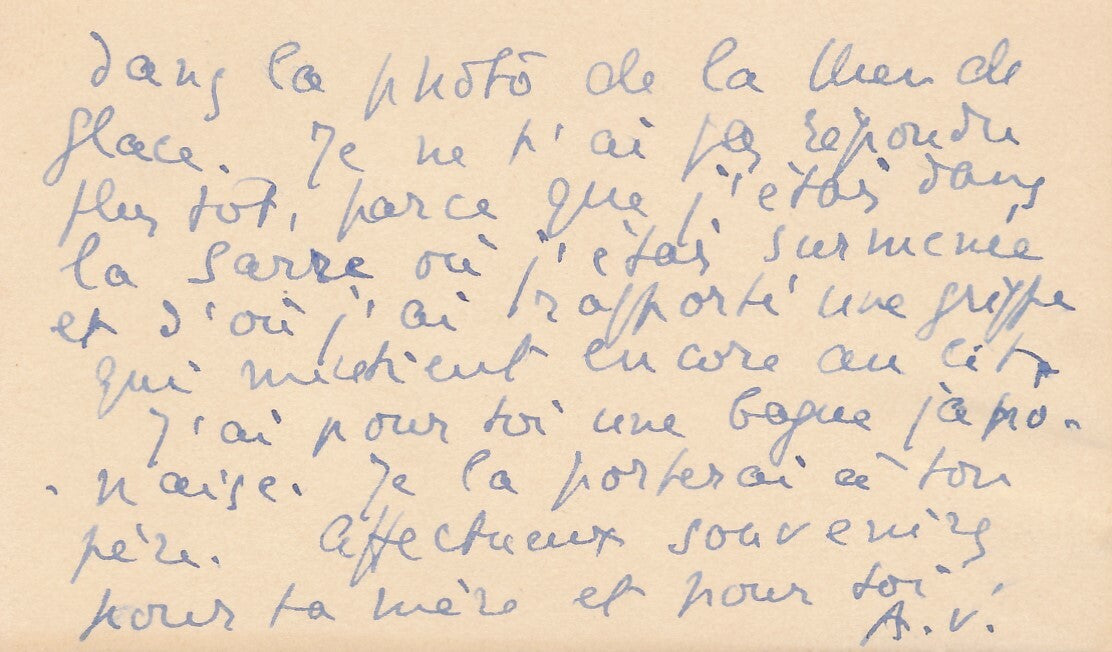 dans la photo de la Mer de
glace. Je ne t'ai pas répondu
plus tôt, parce que j'étais dans
la Sarre où j'étais surmenée
et d'où j'ai rapporté une grippe
qui me tient encore au lit.
J'ai pour toi une bague japo-
-naise. Je la porterai à ton
père. Affectueux souvenirs
pour ta mère et pour toi
A.V.